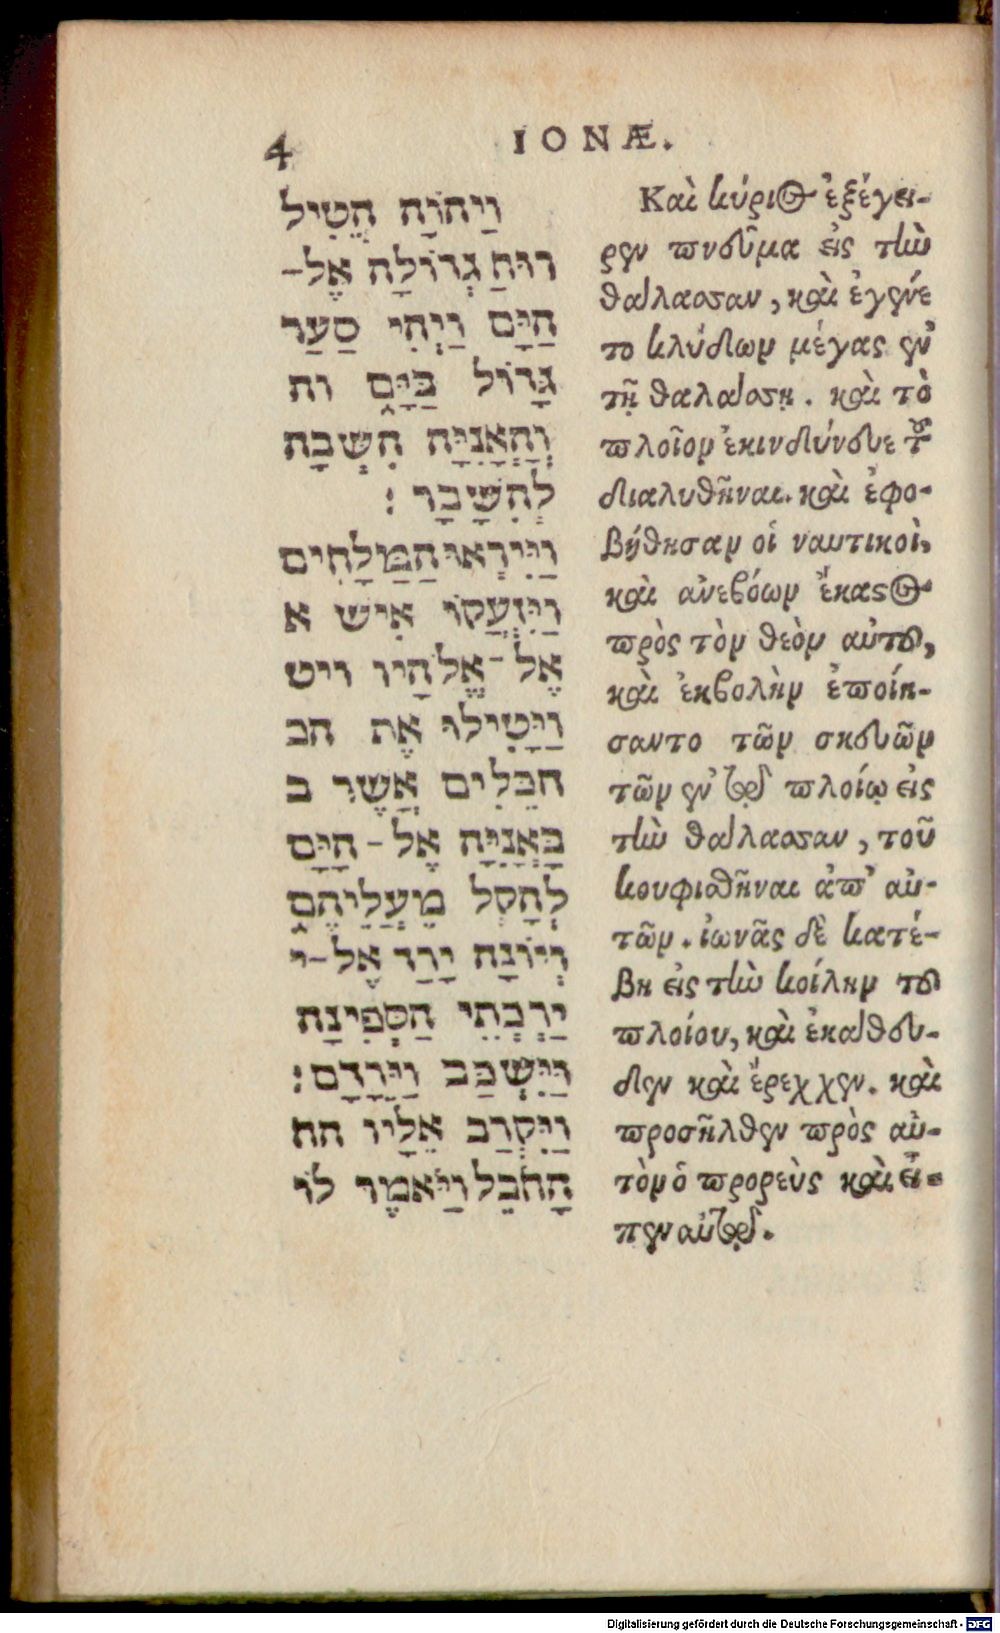 4
IONÆ.
וַיהוָֹה הֵטִיל
רוּחַ גְּדוֹלָה אֶל-
הַיָּם וַיְהִי סַעַר
גָּדוֹל בַּיָּם וה
וְהָאֳנִיָּה חִשְּׁבָה
לְהִשָּׁבֵר :
וַיִּירְאוּ הַמַּלָּחִים
וַיִּזְעֲקוּ אִישׁ א
אֶל-אֱלֹהָיו ויט
וַיָּטִילוּ אֶת הכ
הַכֵּלִים אֲשֶׁר ב
בָּאֳנִיָּה אֶל-הַיָּם
לְהָקֵל מֵעֲלֵיהֶם
וְיוֹנָה יָרַד אֶל-י
יַרְכְּתֵי הַסְּפִינָה
וַיִּשְׁכַּב וַיֵּרָדַם :
וַיִּקְרַב אֵלָיו הח
הַחֹבֵל וַיֹּאמֶר לוֹ
Καὶ κύριος ἐξέγει-
ρεν πνεῦμα εἰς τὴν
θάλασσαν, καὶ ἐγένε
το κλύδων μέγας ἐν
τῇ θαλάσσῃ. καὶ τὸ
πλοῖον ἐκινδύνευε τοῦ
διαλυθῆναι. καὶ ἐφο-
βήθησαν οἱ ναυτικοὶ,
καὶ ἀνεβόων ἕκαστος
πρὸς τὸν θεὸν αὐτου,
καὶ ἐκβολὴν ἐποίη-
σαντο τῶν σκευῶν
τῶν ἐν τῷ πλοίῳ εἰς
τὴν θάλασσαν, τοῦ
κουφισθῆναι ἀπ’ αὐ-
τῶν. ἰωνᾶς δὲ κατέ-
βη εἰς τὴν κοίλην του
πλοίου, καὶ ἐκάθευ-
δεν καὶ ἔρεγχεν. καὶ
προσῆλθεν πρὸς αὐ-
τὸν ὁ προρεὺς καὶ εἶ-
πεν αὐτῷ.
Digitalisierung gefördert durch die Deutsche Forschungsgemeinschaft - DFG